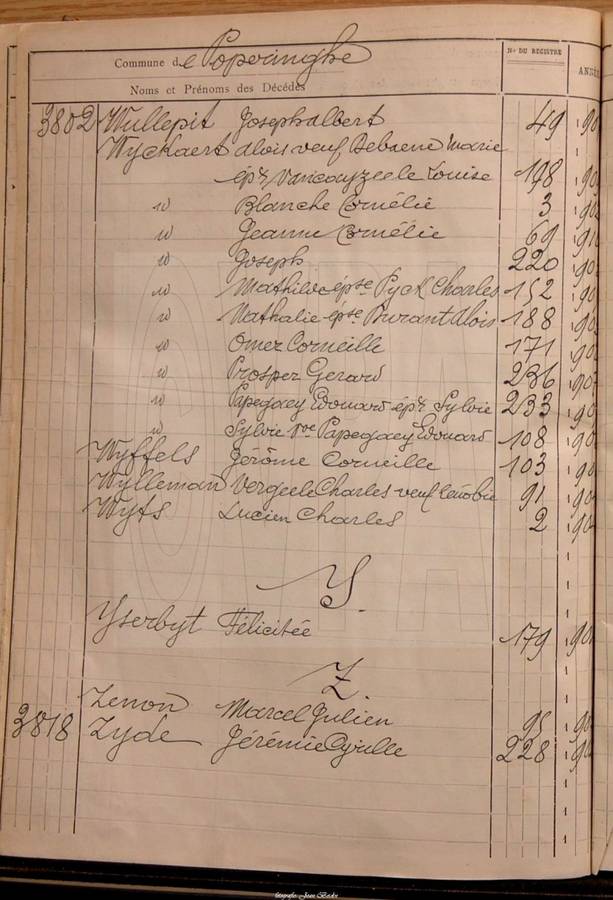 Commune de Poperinghe
Nos DU REGISTRE
Noms et Prénoms des Décédés
3802 Wullepit Joseph albert 49 90
Wyckaert alois veuf Debaene Marie
épse Vancayzeele Louise 198 90
w Blanche Cornélie 3 90
w Jeanne Cornélie 69 91
w Joseph 220 90
w Mathilde épse Pyck Charles 152 90
w Nathalie épse Durant Alois 188 90
w Omer Corneille 171 90
w Prosper Gerard 236 90
w Papegaey Edouard épx Sylvie 233 90
w Sylvie Vve Papegaey Edouard 108 90
Wyffels Jérôme Corneille 103 90
Wylleman Vergeele Charles veuf 91 90
Wyts Lucien Charles 2 90
Y.
Yserbyt Félicitée 179 90
Z.
Zenon Marcel Julien 95 90
3818 Zyde Jérémie Cyrille 228 90